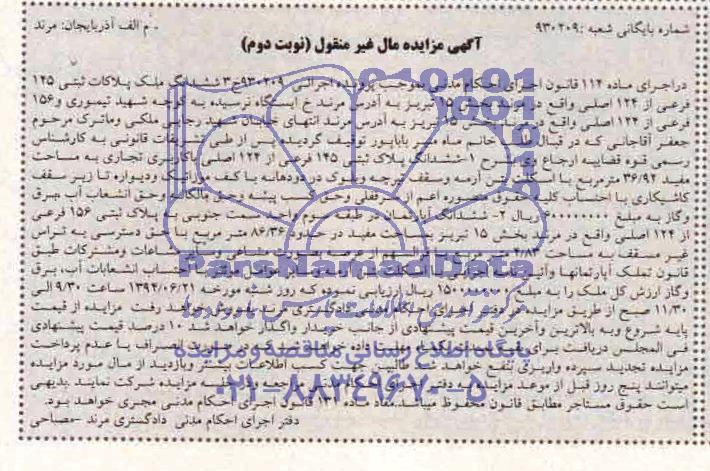 شماره بایگانی شعبه : ۹۳۰۲۰۹
م الف آذربایجان: مرند
آگهی مزایده مال غیر منقول (نوبت دوم)
دراجرای ماده ۱۱۴ قانون اجرای احکام مدنی بموجب پرونده اجرائی ۹۳۰۲۰۹ج۳ ششدانگ ملک پلاکات ثبتی ۱۴۵
فرعی از ۱۲۴ اصلی واقع در مرند بخش ۱۵ تبریز به آدرس مرند خ ایستگاه نرسیده به کوچه شهید تیموری و۱۵۶
فرعی از ۱۲۴ اصلی واقع در مرند بخش ۱۵ تبریز به آدرس مرند انتهای خیابان شهید رجایی ملکی وماترک مرحوم
جعفر آقاجانی که در قبال طلب خانم ماه میر باباپور توقیف گردید. پس از طی تشریفات قانونی به کارشناس
رسمی قوه قضاییه ارجاع وی شرح ۱-ششدانگ پلاک ثبتی ۱۴۵ فرعی از ۱۲۴ اصلی باکاربری تجاری به مساحت
مفید ۳۶/۹۲ مترمربع با اسکلت بتن آرمه وسقف تیرچه وبلوک درب ودهانه با کف موزائیک ودیواره تا زیر سقف
کاشیکاری با احتساب کلیه حقوق متصوره اعم از سرقفلی وحق کسب پیشه وحق مالکانه وحق انشعاب آب ،برق
وگاز به مبلغ ریال ۲- ششدانگ آپارتمان در طبقه سوم واحد سمت جنوبی به پلاک ثبتی ۱۵۶ فرعی
از ۱۲۴ اصلی واقع در مرند بخش ۱۵ تبریز به مساحت مفید در حدود ۸۶/۳۶ متر مربع با حق دسترسی به تراس
غیر مسقف به مساحت ۴/۸۳ متر مربع از عرصه بصورت مشاعی و مشاعات ومشترکات طبق
قانون تملک آپارتمانها وآئین نامه اجرایی با احتساب انشعابات آب، برق
وگاز ارزش کل ملک را به مبلغ ریال ارزیابی نموده که روز شنبه مورخه ۱۳۹۴/۰۶/۲۱ ساعت ۹/۳۰ الی
۱۱/۳۰ صبح از طریق مزایده در دفتر اجرای احکام مدنی دادگستری مرند بفروش خواهد رفت مزایده از قیمت
پایه شروع وبه بالاترین وآخرین قیمت پیشنهادی از جانب خریدار واگذار خواهد شد. ۱۰ درصد قیمت پیشنهادی
فی المجلس دریافت برای مهلت داده خواهد شد که در صورت انصراف یا عدم پرداخت
مزایده تجدید سپرده واریزی بنفع خواهد شد. طالبین جهت کسب اطلاعات بیشتر وبازدید از مال مورد مزایده
میتوانند پنج روز قبل از موعد مزایده به دفتر اجرای مراجعه و مزایده شرکت نمایند. بدیهی
است حقوق مستاجر مطابق قانون محفوظ میباشد.مفاد ماده قانون اجرای احکام مدنی مجری خواهد بود.
دفتر اجرای احکام مدنی دادگستری مرند -مصباحی
ParsNamadData
پایگاه اطلاع رسانی مناقصه و مزایده
۰۲۱-۸۸۳۴۹۶۷۰-۵